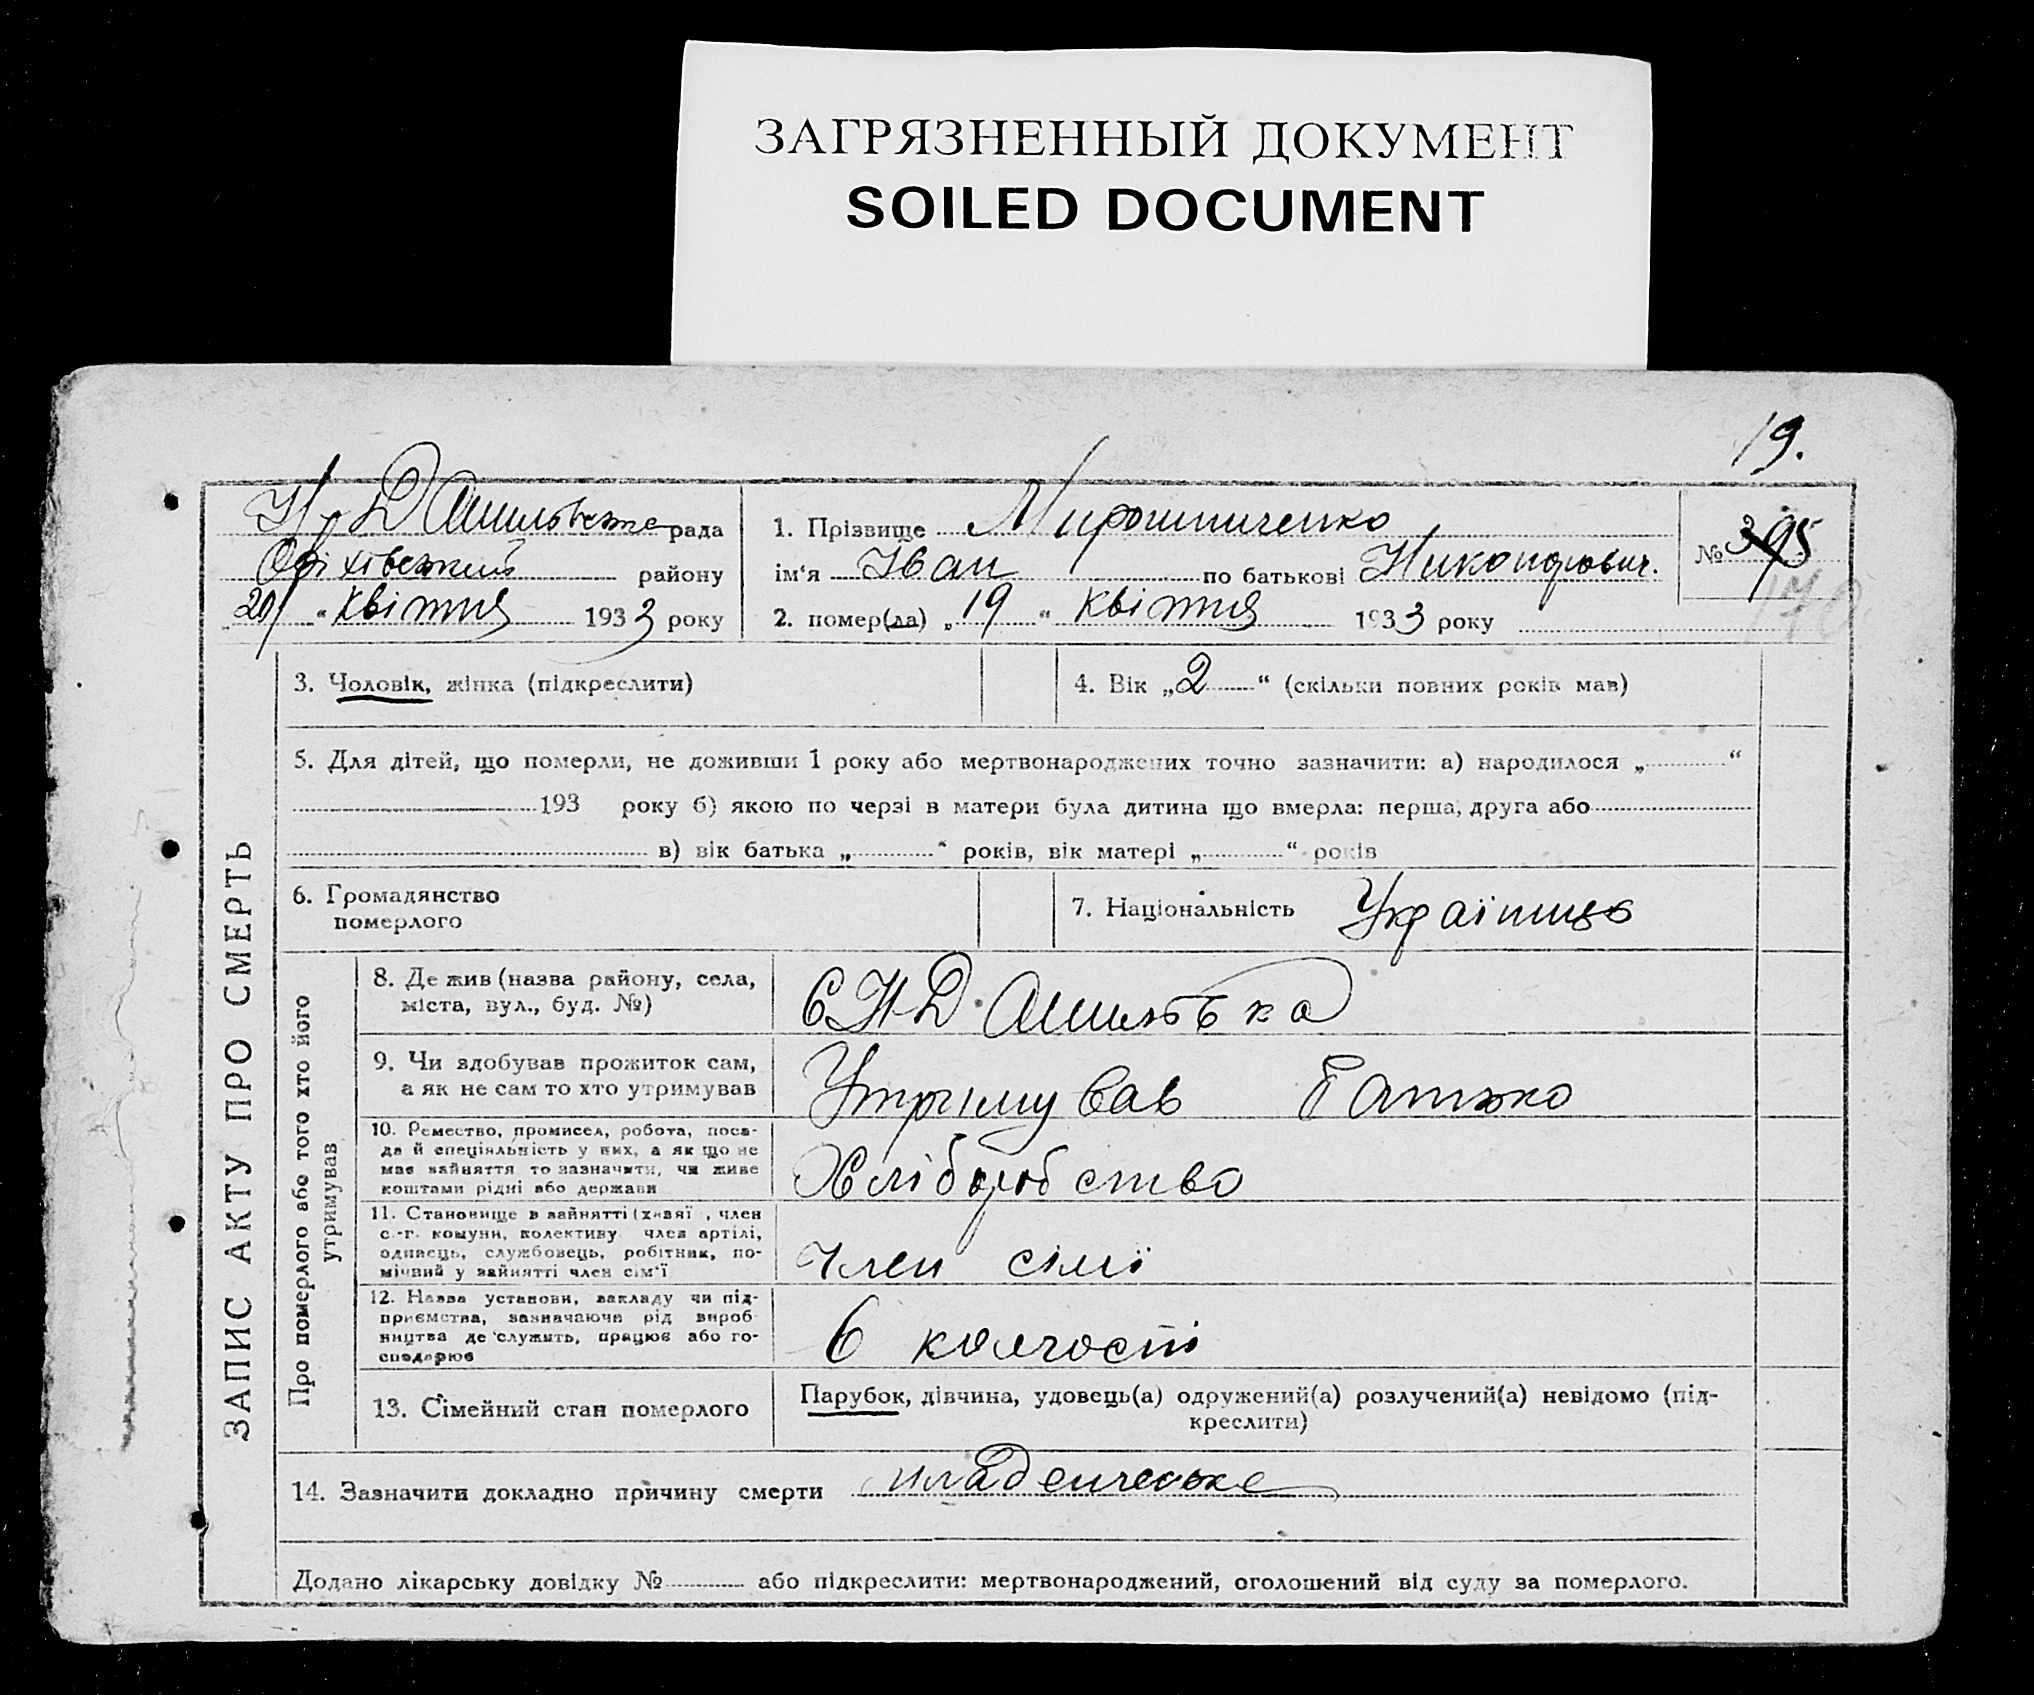 ЗАГРЯЗНЕННЫЙ ДОКУМЕНТ
SOILED DOCUMENT
19.
рада
Оріхівський району
20 „ квітня 1933 року
1. Прізвище Мирошниченко
ім'я Іван по батькові Никонорович.
2. помер(ла) „19“ квітня 1933 року
№ 395
3. Чоловік, жінка (підкреслити)
4. Вік „2“ (скільки повних років мав)
5. Для дітей, що померли, не доживши 1 року або мертвонароджених точно зазначити: а) народилося „ “
193 року б) якою по черзі в матери була дитина що вмерла: перша, друга або
в) вік батька „ “ років, вік матері „ “ років
6. Громадянство
померлого
7. Національність Українць
ЗАПИС АКТУ ПРО СМЕРТЬ
Про померлого або того хто його
утримував
8. Де жив (назва району, села,
міста, вул., буд. №)
С Н-Д.
9. Чи здобував прожиток сам,
а як не сам то хто утримував
Утримував батько
10. Ремество, промисел, робота, поса-
да й спеціяльність у них, а як що не
має зайняття то зазначити, чи живе
коштами рідні або держави
Хліборобство
11. Становище в зайнятті (хазяї , член
с.-г. комуни, колективу член артілі,
одинець, службовець, робітник, по-
мічний у зайнятті член сім'ї
Член сімї
12. Назва установи, закладу чи під-
приємства, зазначаючи рід вироб-
ництва де служить, працює або го-
сподарює
в колгоспі
13. Сімейний стан померлого
Парубок, дівчина, удовець(а) одружений(а) розлучений(а) невідомо (під-
креслити)
14. Зазначити докладно причину смерти младенческе
Додано лікарську довідку № або підкреслити: мертвонароджений, оголошений від суду за померлого.